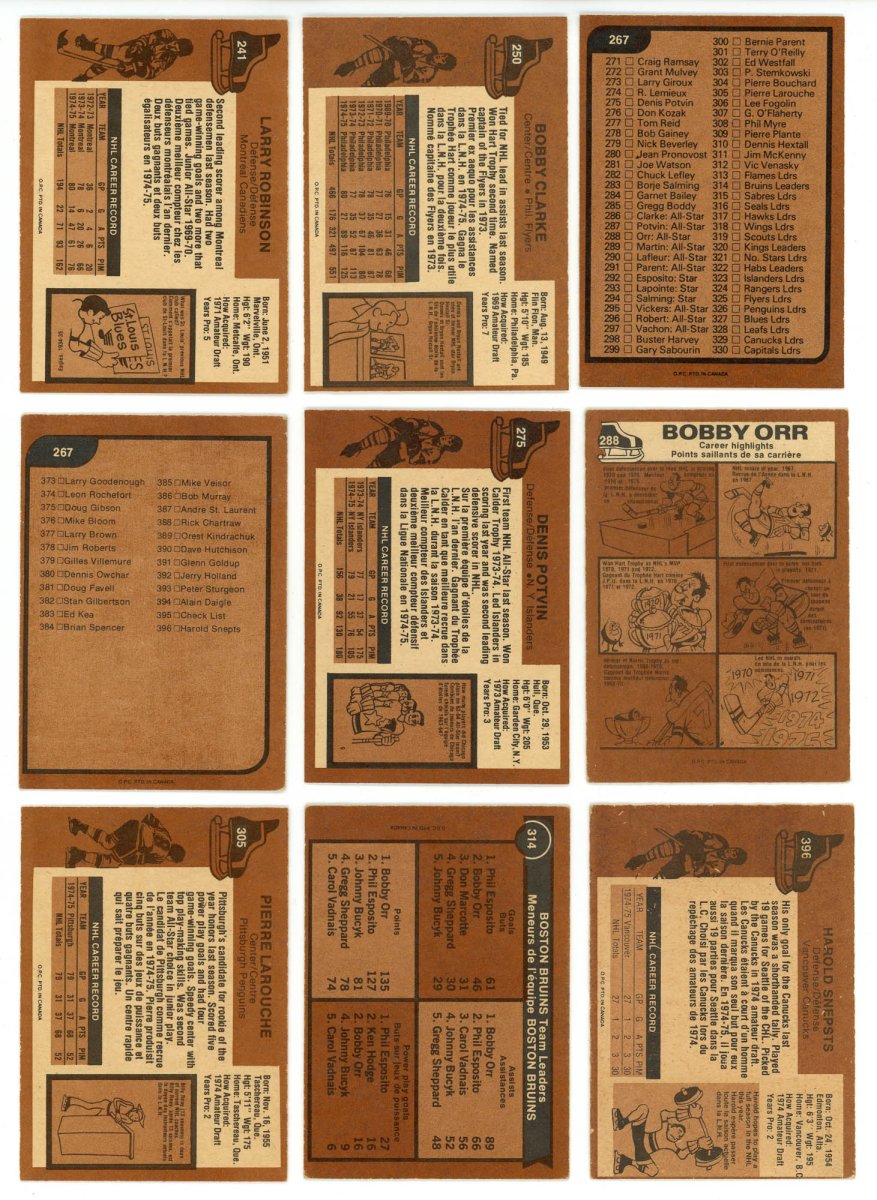 241
LARRY ROBINSON
Defense/Défense
Montreal Canadiens
Second leading scorer among Montreal
defensemen last season. Had two
game-winning goals and two more that
tied games. Junior All-Star 1969-70.
Deuxième meilleur compteur chez les
défenseurs montréalais l'an dernier.
Deux buts gagnants et deux buts
égalisateurs en 1974-75.
NHL CAREER RECORD
YEAR TEAM GP G A PTS PIM
1972-73 Montreal 36 2 4 6 20
1973-74 Montreal 78 6 20 26 66
1974-75 Montreal
NHL Totals 194 22 71 93 162
Born: June 2, 1951
Marvelville, Ont.
Hgt: 6'2" Wgt: 190
Home: Metcalfe, Ont.
How Acquired:
1971 Amateur Draft
Years Pro: 5
St. Louis
Blues
O.P.C. PTD. IN CANADA
250
BOBBY CLARKE
Center/Centre • Phil. Flyers
Tied for NHL lead in assists last season.
Won Hart Trophy second time. Named
captain of the Flyers in 1973.
Premier ex aequo pour les assistances
dans la L.N.H. en 1974-75. Gagna le
Trophée Hart comme joueur le plus utile
dans la L.N.H. pour la deuxième fois.
Nommé capitaine des Flyers en 1973.
NHL CAREER RECORD
YEAR TEAM GP G A PTS PIM
1969-70 Philadelphia 76 15 31 46 68
1970-71 Philadelphia 77 27 36 63 78
1971-72 Philadelphia 78 35 46 81 87
1972-73 Philadelphia 78 37 67 104 80
1973-74 Philadelphia 77 35 52 87 113
1974-75 Philadelphia 80 27 89 116 125
NHL Totals
Born: Aug. 13, 1949
Flin Flon, Man.
Hgt: 5'10" Wgt: 185
Home: Philadelphia, Pa.
How Acquired:
1969 Amateur Draft
Years Pro: 7
O.P.C. PTD. IN CANADA
267
271 Craig Ramsay
272 Grant Mulvey
273 Larry Giroux
274 R. Lemieux
275 Denis Potvin
276 Don Kozak
277 Tom Reid
278 Bob Gainey
279 Nick Beverley
280 Jean Pronovost
281 Joe Watson
282 Chuck Lefley
283 Borje Salming
284 Garnet Bailey
285 Gregg Boddy
286 Clarke: All-Star
287 Potvin: All-Star
288 Orr: All-Star
289 Martin: All-Star
290 Lafleur: All-Star
291 Parent: All-Star
292 Esposito: Star
293 Lapointe: Star
294 Salming: Star
295 Vickers: All-Star
296 Robert: All-Star
297 Vachon: All-Star
298 Buster Harvey
299 Gary Sabourin
300 Bernie Parent
301 Terry O'Reilly
302 Ed Westfall
303 P. Stemkowski
304 Pierre Bouchard
305 Pierre Larouche
306 Lee Fogolin
307 G. O'Flaherty
308 Phil Myre
309 Pierre Plante
310 Dennis Hextall
311 Jim McKenny
312 Vic Venasky
313 Flames Ldrs
314 Bruins Leaders
315 Sabres Ldrs
316 Seals Ldrs
317 Hawks Ldrs
318 Wings Ldrs
319 Scouts Ldrs
320 Kings Leaders
321 No. Stars Ldrs
322 Habs Leaders
323 Islanders Ldrs
324 Rangers Ldrs
325 Flyers Ldrs
326 Penguins Ldrs
327 Blues Ldrs
328 Leafs Ldrs
329 Canucks Ldrs
330 Capitals Ldrs
O.P.C. PTD. IN CANADA
267
373 Larry Goodenough
374 Leon Rochefort
375 Doug Gibson
376 Mike Bloom
377 Larry Brown
378 Jim Roberts
379 Gilles Villemure
380 Dennis Owchar
381 Doug Favell
382 Stan Gilbertson
383 Ed Kea
384 Brian Spencer
385 Mike Veisor
386 Bob Murray
387 Andre St. Laurent
388 Rick Chartraw
389 Orest Kindrachuk
390 Dave Hutchison
391 Glenn Goldup
392 Jerry Holland
393 Peter Sturgeon
394 Alain Daigle
395 Check List
396 Harold Snepts
O.P.C. PTD. IN CANADA
275
DENIS POTVIN
Defense/Défense • NY Islanders
First team NHL All-Star last season. Won
Calder Trophy 1973-74. Led Islanders in
scoring last year and was second leading
defensive scorer in NHL.
Sur la première équipe d'étoiles de la
L.N.H. l'an dernier. Gagnant du Trophée
Calder en tant que meilleure recrue dans
la L.N.H. durant la saison 1973-74.
Meilleur compteur des Islanders et
deuxième meilleur compteur défensif
dans la Ligue Nationale en 1974-75.
NHL CAREER RECORD
YEAR TEAM GP G A PTS PIM
1973-74 NY Islanders 77 17 37 54 175
1974-75 NY Islanders 79 21 55 76 105
NHL Totals 156 38 92 130 180
Born: Oct. 29, 1953
Hull, Que.
Hgt: 6'0" Wgt: 205
Home: Garden City, N.Y.
How Acquired:
1973 Amateur Draft
Years Pro: 3
O.P.C. PTD. IN CANADA
288
BOBBY ORR
Career highlights
Points saillants de sa carrière
NHL rookie of year, 1967.
Recrue de l'Année dans la L.N.H.
en 1967.
Won Hart Trophy as NHL's MVP
1970, 1971 and 1972.
1970
1971
1972
1974
1975
O.P.C. PTD. IN CANADA
305
PIERRE LAROUCHE
Center/Centre
Pittsburgh Penguins
Pittsburgh's candidate for rookie of the
year honors last season. Scored five
power play goals and had four
game-winning goals. Speedy center with
top play-making skills. Was second
team All-Star choice in junior play.
Le candidat de Pittsburgh comme recrue
de l'année en 1974-75. Pierre produisit
cinq buts sur des jeux de puissance et
quatre buts gagnants. Un centre rapide
qui sait préparer le jeu.
NHL CAREER RECORD
YEAR TEAM GP G A PTS PIM
1974-75 Pittsburgh 79 31 37 68 52
NHL Totals 79 31 37 68 52
Born: Nov. 16, 1955
Taschereau, Que.
Hgt: 5'11" Wgt: 175
Home: Taschereau, Que.
How Acquired:
1974 Amateur Draft
Years Pro: 2
O.P.C. PTD. IN CANADA
314
BOSTON BRUINS Team Leaders
Meneurs de l'équipe BOSTON BRUINS
Goals
Buts
1. Phil Esposito 61
2. Bobby Orr 46
3. Don Marcotte 31
4. Gregg Sheppard 30
5. Johnny Bucyk 29
Assists
Assistances
1. Bobby Orr 89
2. Phil Esposito 66
3. Carol Vadnais 56
4. Johnny Bucyk 52
5. Gregg Sheppard 48
Points
1. Bobby Orr 135
2. Phil Esposito 127
3. Johnny Bucyk 81
4. Gregg Sheppard 78
5. Carol Vadnais 74
Power play goals
Buts sur jeux de puissance
1. Phil Esposito 27
2. Ken Hodge 16
2. Bobby Orr 16
4. Johnny Bucyk 9
5. Carol Vadnais 6
O.P.C. PTD. IN CANADA
396
HAROLD SNEPSTS
Defense/Défense
Vancouver Canucks
His only goal for the Canucks last
season was a shorthanded tally. Played
19 games for Seattle of the CHL. Picked
by the Canucks in 1974 amateur draft.
Les Canucks étaient à court d'un homme
quand il marqua son seul but pour eux
la saison dernière. En 1974-75, il joua
aussi 19 parties pour Seattle dans la
L.C. Choisi par les Canucks lors du
repêchage des amateurs de 1974.
NHL CAREER RECORD
YEAR TEAM GP G A PTS PIM
1974-75 Vancouver 27 1 2 3 30
NHL Totals 27 1 2 3 30
Born: Oct. 24, 1954
Edmonton, Alta.
Hgt: 6'3" Wgt: 195
Home: Vancouver, B.C.
How Acquired:
1974 Amateur Draft
Years Pro: 2
Harold hopes to play a
full season in the NHL
this year.
Harold espère passer
toute la saison actuelle
dans la L.N.H.
O.P.C. PTD. IN CANADA